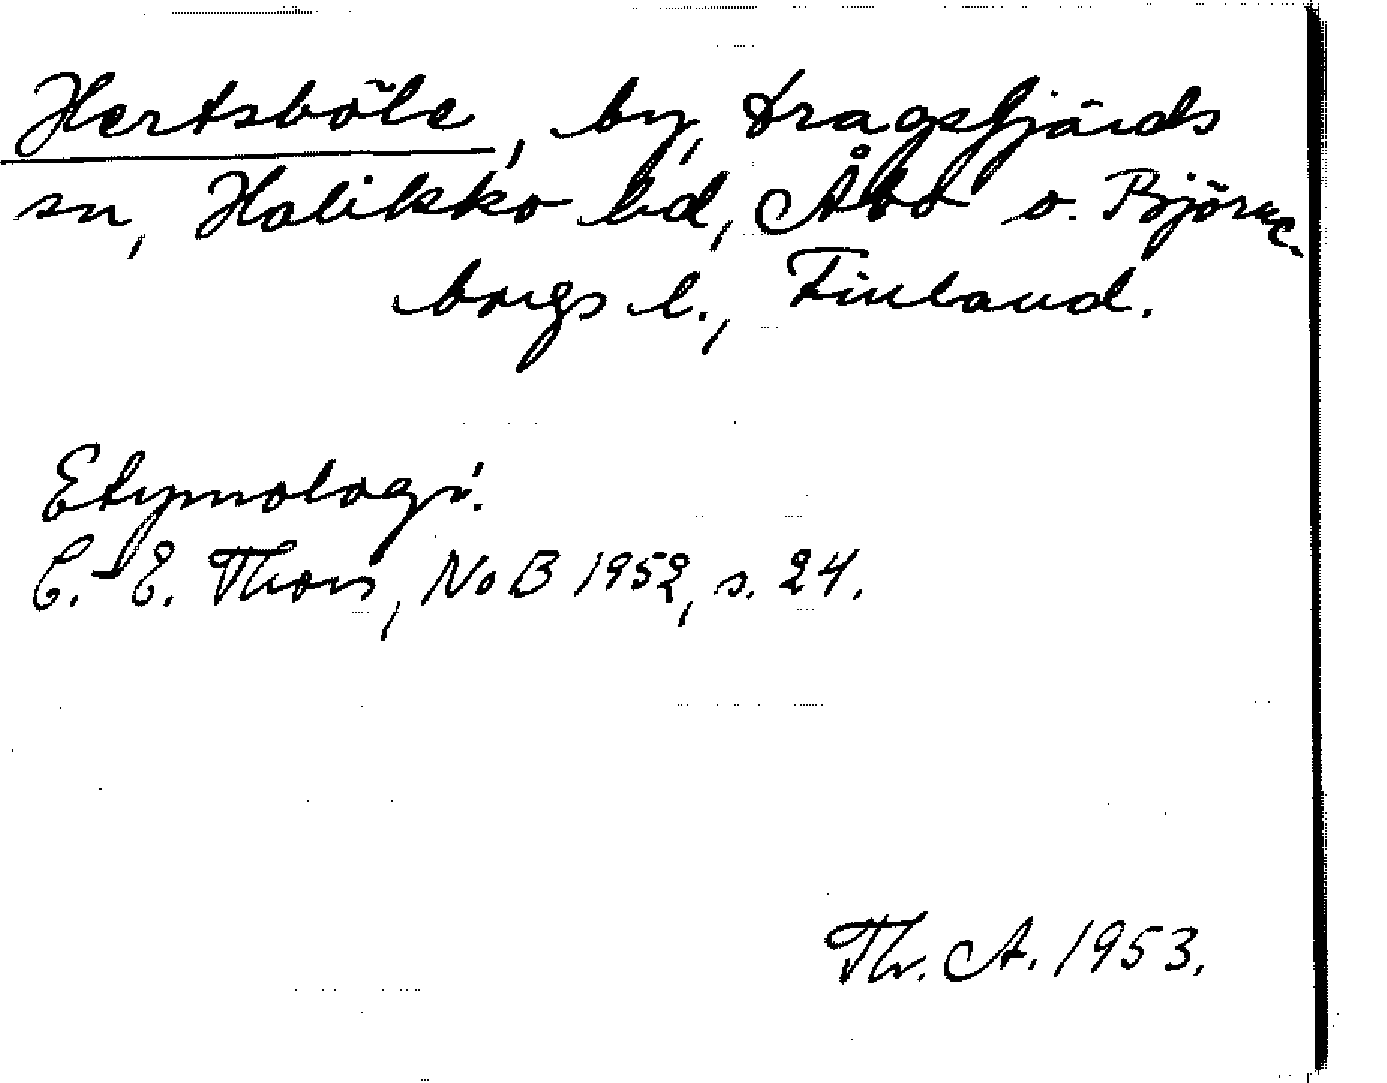 Hertsböle, by, Dragsfjärds
sn, Halikko hd, Åbo o. Björne-
borgs l., Finland.
Etymologi:
C.-E. Thors, NoB 1952, s. 24.
Th. A. 1953.